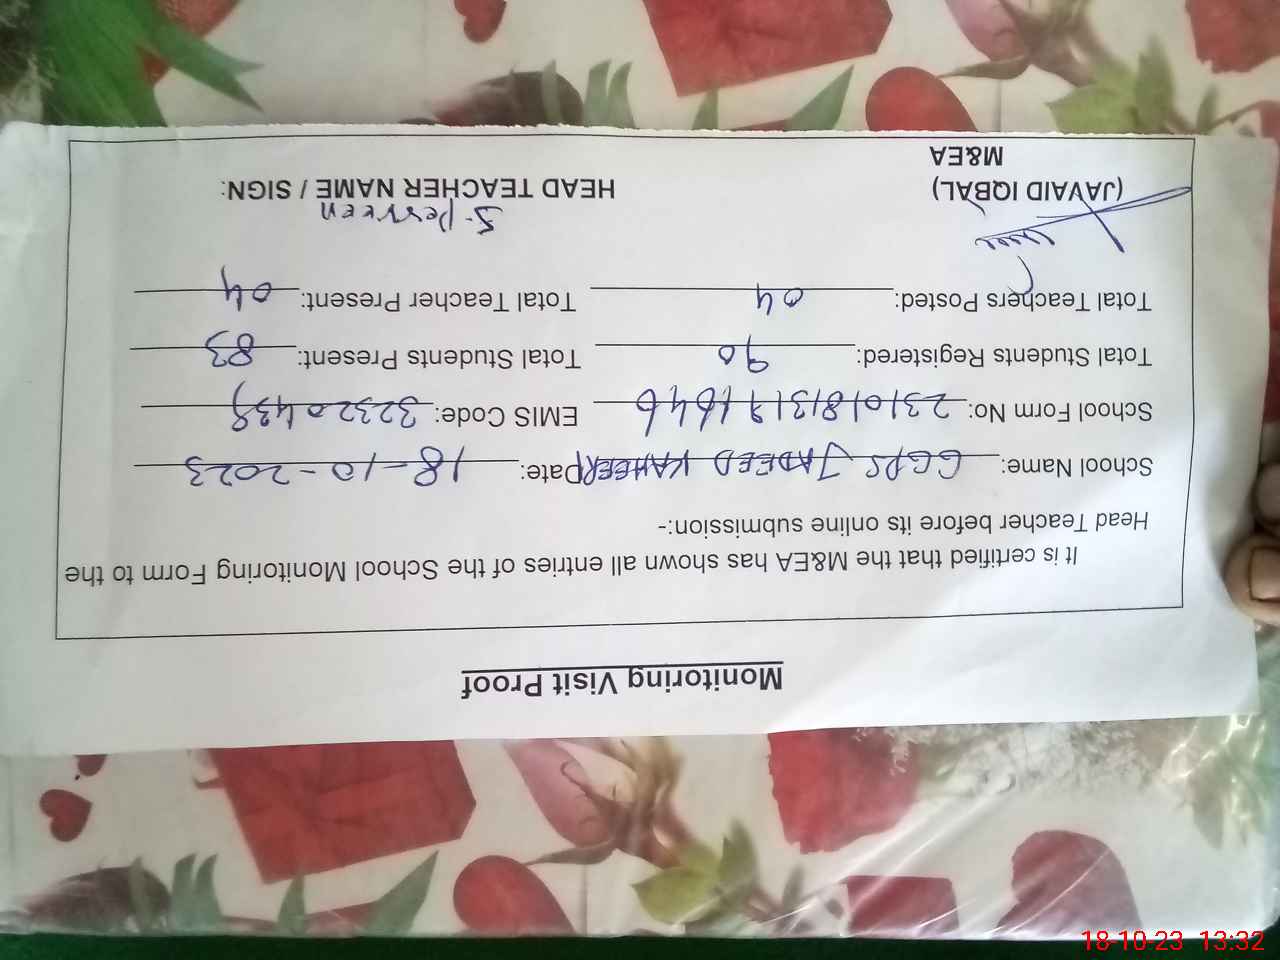 Monitoring Visit Proof
It is certified that the M&EA has shown all entries of the School Monitoring Form to the
Head Teacher before its online submission:-
School Name: GGPS JADEED KAHEERI Date: 18-10-2023
School Form No: 23101813191646 EMIS Code: 32320438
Total Students Registered: 90 Total Students Present: 83
Total Teachers Posted: 04 Total Teacher Present: 04
S. Perveen
(JAVAID IQBAL) HEAD TEACHER NAME / SIGN:
M&EA
18-10-23 13:32